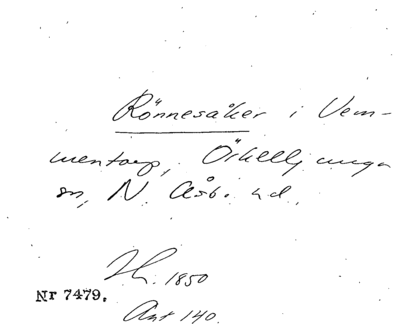 Rönnesåker i Vem-
mentorp, Örkelljunga
sn, N. Åsb. hd.
1850
Nr 7479.
Ant 140.